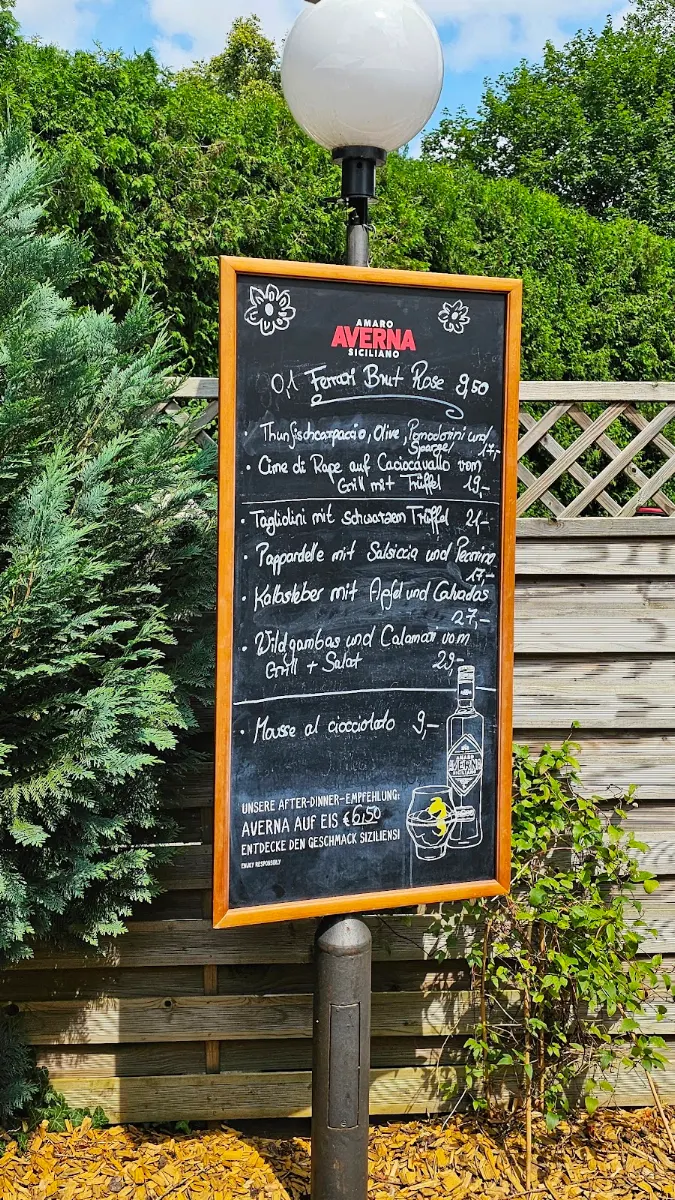 AMARO
AVERNA
SICILIANO
0,1 Ferrari Brut Rose 9,50
· Thunfischcarpaccio, Olive, Pomodorini und
Spargel 17,-
· Cime di Rape auf Caciocavallo vom
Grill mit Trüffel 19,-
· Tagliolini mit schwarzem Trüffel 21,-
· Pappardelle mit Salsiccia und Pecorino
17,-
· Kalbsleber mit Apfel und Calvados
27,-
· Wildgambas und Calamar vom
Grill + Salat 29,-
· Mousse al ciocciolato 9,-
AMARO
AVERNA
SICILIANO
UNSERE AFTER-DINNER-EMPFEHLUNG:
AVERNA AUF EIS € 6,50
ENTDECKE DEN GESCHMACK SIZILIENS!
ENJOY RESPONSIBLY